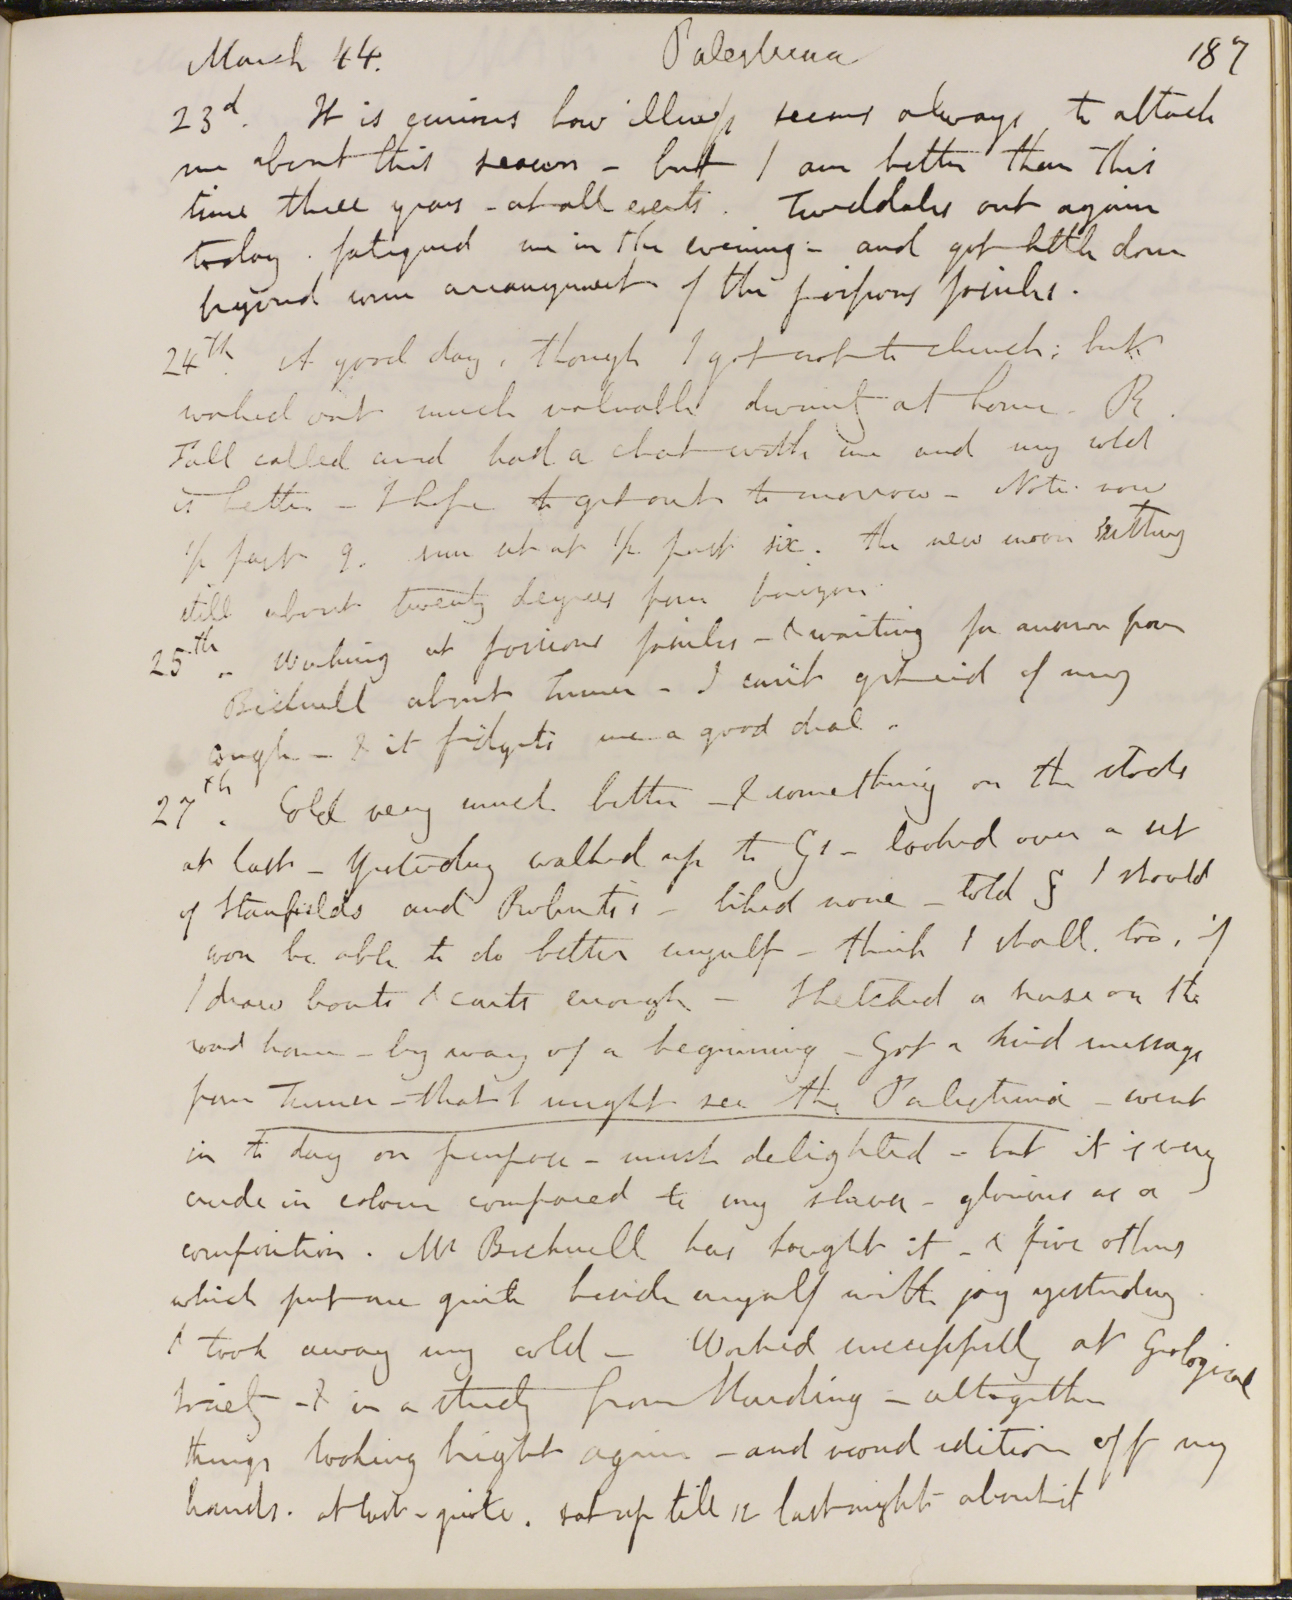 March 44. Palestrina 187
23d. It is curious how illness seems always to attack
me about this season - but I am better than this
time three years - at all events. Tweddales out again
today. fatigued me in the evening - and got little done
beyond some arrangement of the fossils.
24th. A good day, though I got not to church; but
worked out much valuable divinity at home. R.
Fall called and had a chat with me and my cold
is better - I hope to get out to morrow - Note. now
1/2 past 9. sun set at 1/2 past six. the new moon setting
still about twenty degrees from horizon.
25th. Working at fossils - & waiting for answer from
Bicknell about Turner - I can't get rid of my
cough - & it fidgets me a good deal.
27th. Cold very much better - & something on the stocks
at last - Yesterday walked up to Gs - looked over a set
of Stanfields and Roberts's - liked none - told G I should
soon be able to do better myself - think I shall. too, if
I draw boats & carts enough - Sketched a horse on the
road home - by way of a beginning - Got a kind message
from Turner - that I might see the Palestrina - went
in to day on purpose - most delighted - but it is very
crude in colour compared to my slaver - glorious as a
composition. Mr Bicknell has bought it - & five others
which put me quite beside myself with joy yesterday
& took away my cold - Worked successfully at Geological
Society - & in a study from Harding - altogether
things looking bright again - and second edition off my
hands. at last - quite. sat up till 12 last night about it